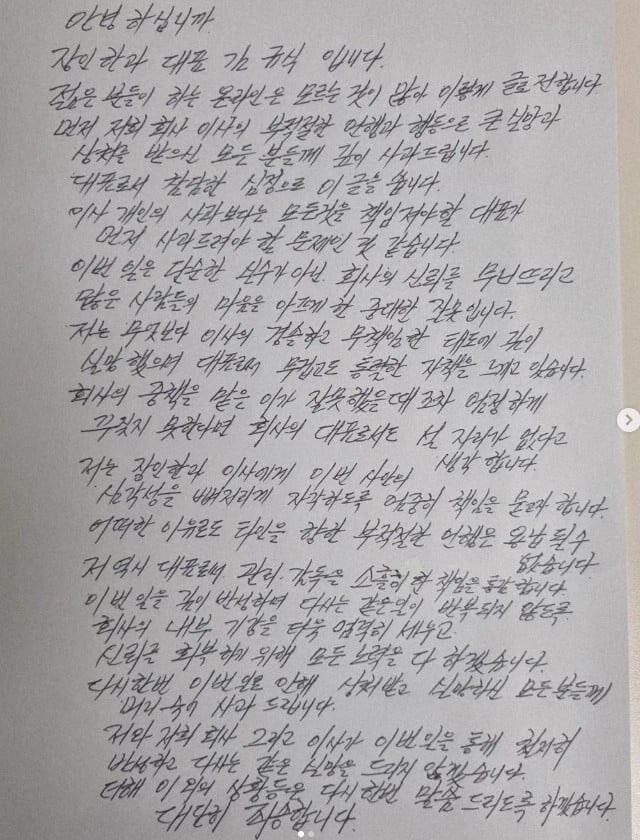 안녕하십니까
장인한과 대표 김규식 입니다.
젊은 분들이 하는 온라인은 모르는 것이 많아 이렇게 글로 전합니다
먼저 저희 회사 이사의 부적절한 언행과 행동으로 큰 실망과
상처를 받으신 모든 분들께 깊이 사과드립니다.
대표로서 참담한 심정으로 이 글을 씁니다.
이사 개인의 사과보다는 모든것을 책임져야할 대표가
먼저 사과드려야 할 문제인 것 같습니다.
이번 일은 단순한 실수가 아닌 회사의 신뢰를 무너뜨리고
많은 사람들의 마음을 아프게 한 중대한 잘못입니다.
저는 무엇보다 이사의 경솔하고 무책임한 태도에 깊이
실망했으며 대표로써 무겁고도 통렬한 자책을 느끼고 있습니다.
회사의 중책을 맡은 이가 잘못했을때 조차 엄정하게
꾸짖지 못한다면 회사의 대표로서도 설 자리가 없다고
생각합니다.
저는 장인한과 이사에게 이번 사안의
심각성을 뼈저리게 자각하도록 엄중히 책임을 묻고자 합니다.
어떠한 이유로도 타인을 향한 부적절한 언행은 용납될수
없습니다
저 역시 대표로써 관리.감독을 소홀히 한 책임을 통감합니다.
이번 일을 깊이 반성하며 다시는 같은일이 반복되지 않도록
회사의 내부 기강을 더욱 엄격히 세우고
신뢰를 회복하기 위해 모든 노력을 다 하겠습니다.
다시한번 이번일로 인해 상처받고 실망하신 모든분들께
머리 숙여 사과 드립니다.
저와 저희 회사 그리고 이사가 이번일을 통해 철저히
반성하고 다시는 같은 실망을 드리지 않겠습니다.
더해 이 외의 상황들은 다시한번 말씀 드리도록 하겠습니다
대단히 죄송합니다.